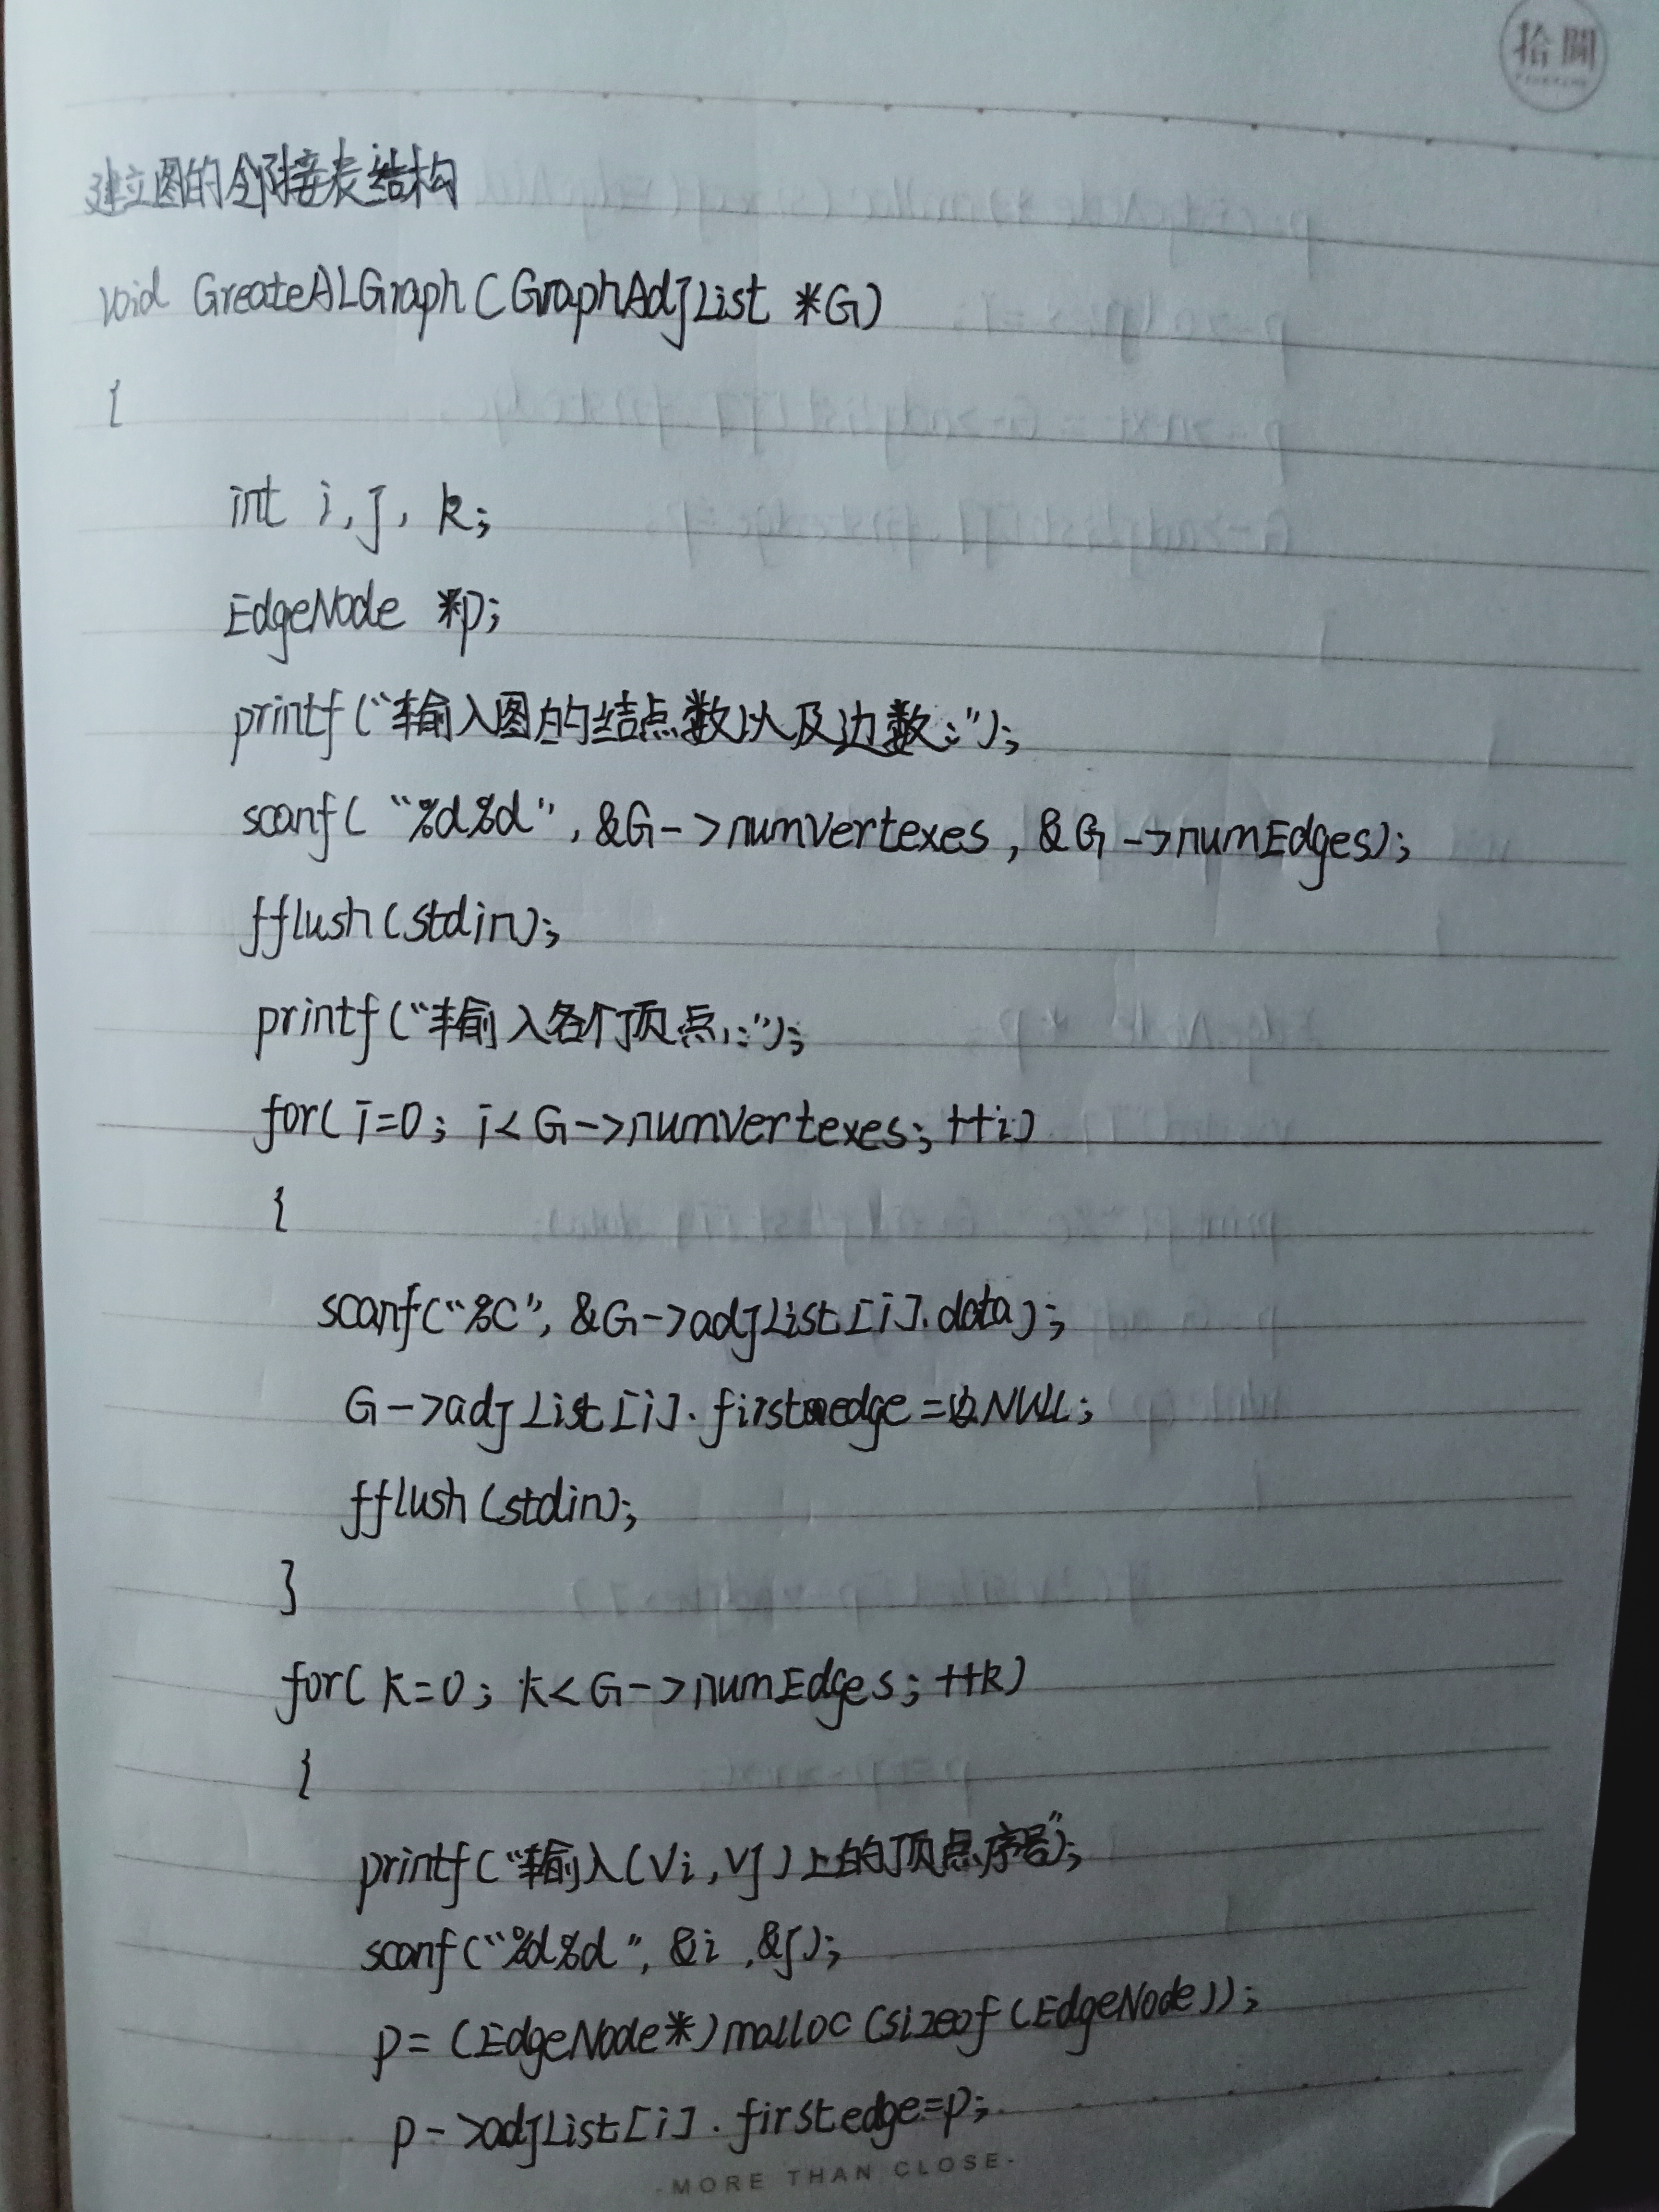 拾間
建立图的邻接表结构
void GreateALGraph(GraphAdjList *G)
{
int i,j,k;
EdgeNode *p;
printf("输入图的结点数以及边数:");
scanf("%d%d",&G->numVertexes,&G->numEdges);
fflush(stdin);
printf("输入各个顶点:");
for(i=0;i<G->numVertexes;++i)
{
scanf("%c",&G->adjList[i].data);
G->adjList[i].firstedge=NULL;
fflush(stdin);
}
for(k=0;k<G->numEdges;++k)
{
printf("输入(Vi,Vj)上的顶点序号");
scanf("%d%d",&i,&j);
p=(EdgeNode*)malloc(sizeof(EdgeNode));
p->adjList[i].firstedge=p;
·MORE THAN CLOSE·